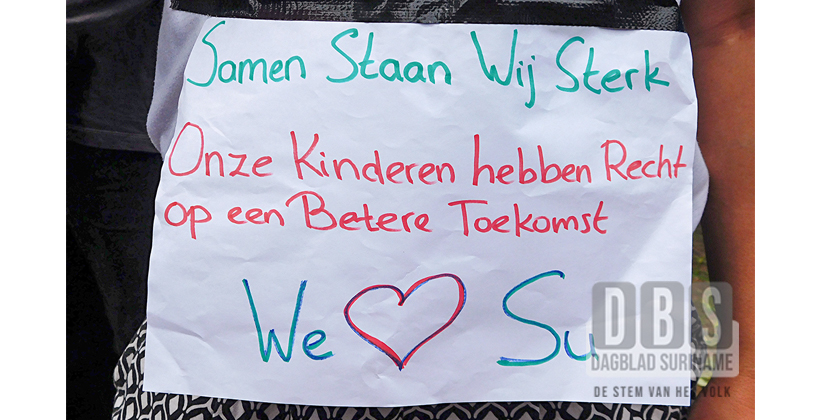 Samen Staan Wij Sterk
Onze Kinderen hebben Recht
op een Betere Toekomst
We ♡ Su
DBS
DAGBLAD SURINAME
DE STEM VAN HET VOLK